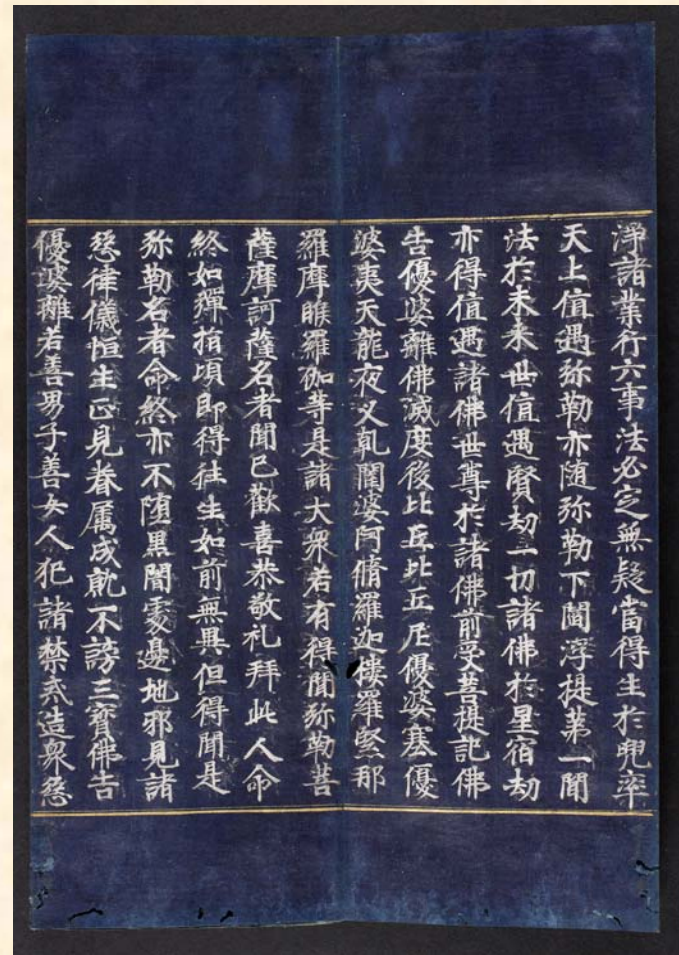 淨諸業行六事法必定無疑當得生於兜率
天上值遇弥勒亦随弥勒下閻浮提第一聞
法於未来世值遇賢劫一切諸佛於星宿劫
亦得值遇諸佛世尊於諸佛前受菩提記佛
告優婆離佛滅度後比丘比丘尼優婆塞優
婆夷天龍夜叉乹闥婆阿脩羅迦樓羅緊那
羅摩睺羅伽等是諸大衆若有得聞弥勒菩
薩摩訶薩名者聞已歡喜恭敬礼拜此人命
終如彈指頃即得往生如前無異但得聞是
弥勒名者命終亦不堕黒闇處邊地邪見諸
惡律儀恒生正見眷屬成就不謗三寳佛告
優婆離若善男子善女人犯諸禁戒造衆惡